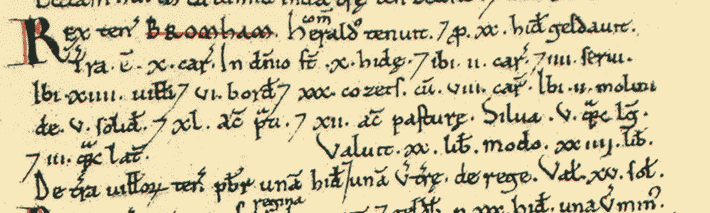 Rex ten BROMHAM. herald com tenuit. ⁊ p xx. hid geldauit.
Tra ē .x. car. In dnio st .x. hidę. ⁊ ibi .ii. car. ⁊ iiii. serui.
Ibi .xiiii. uilli ⁊ vi. bord ⁊ xxx. cozets. cū. viii. car. Ibi .ii. molini
de .v. solid. ⁊ xl. ac pti. ⁊ xii. ac pasturę. Silua .v. qz lg.
⁊ iii. qz lat. Valuit .xx. lib. modo. xxiiij. lib.
De tra uilloꝝ ten pbr unā hid ⁊ unā v trę. de rege. Val .xv. sol.
regina
⁊ geldb p xx. hid. una v min.